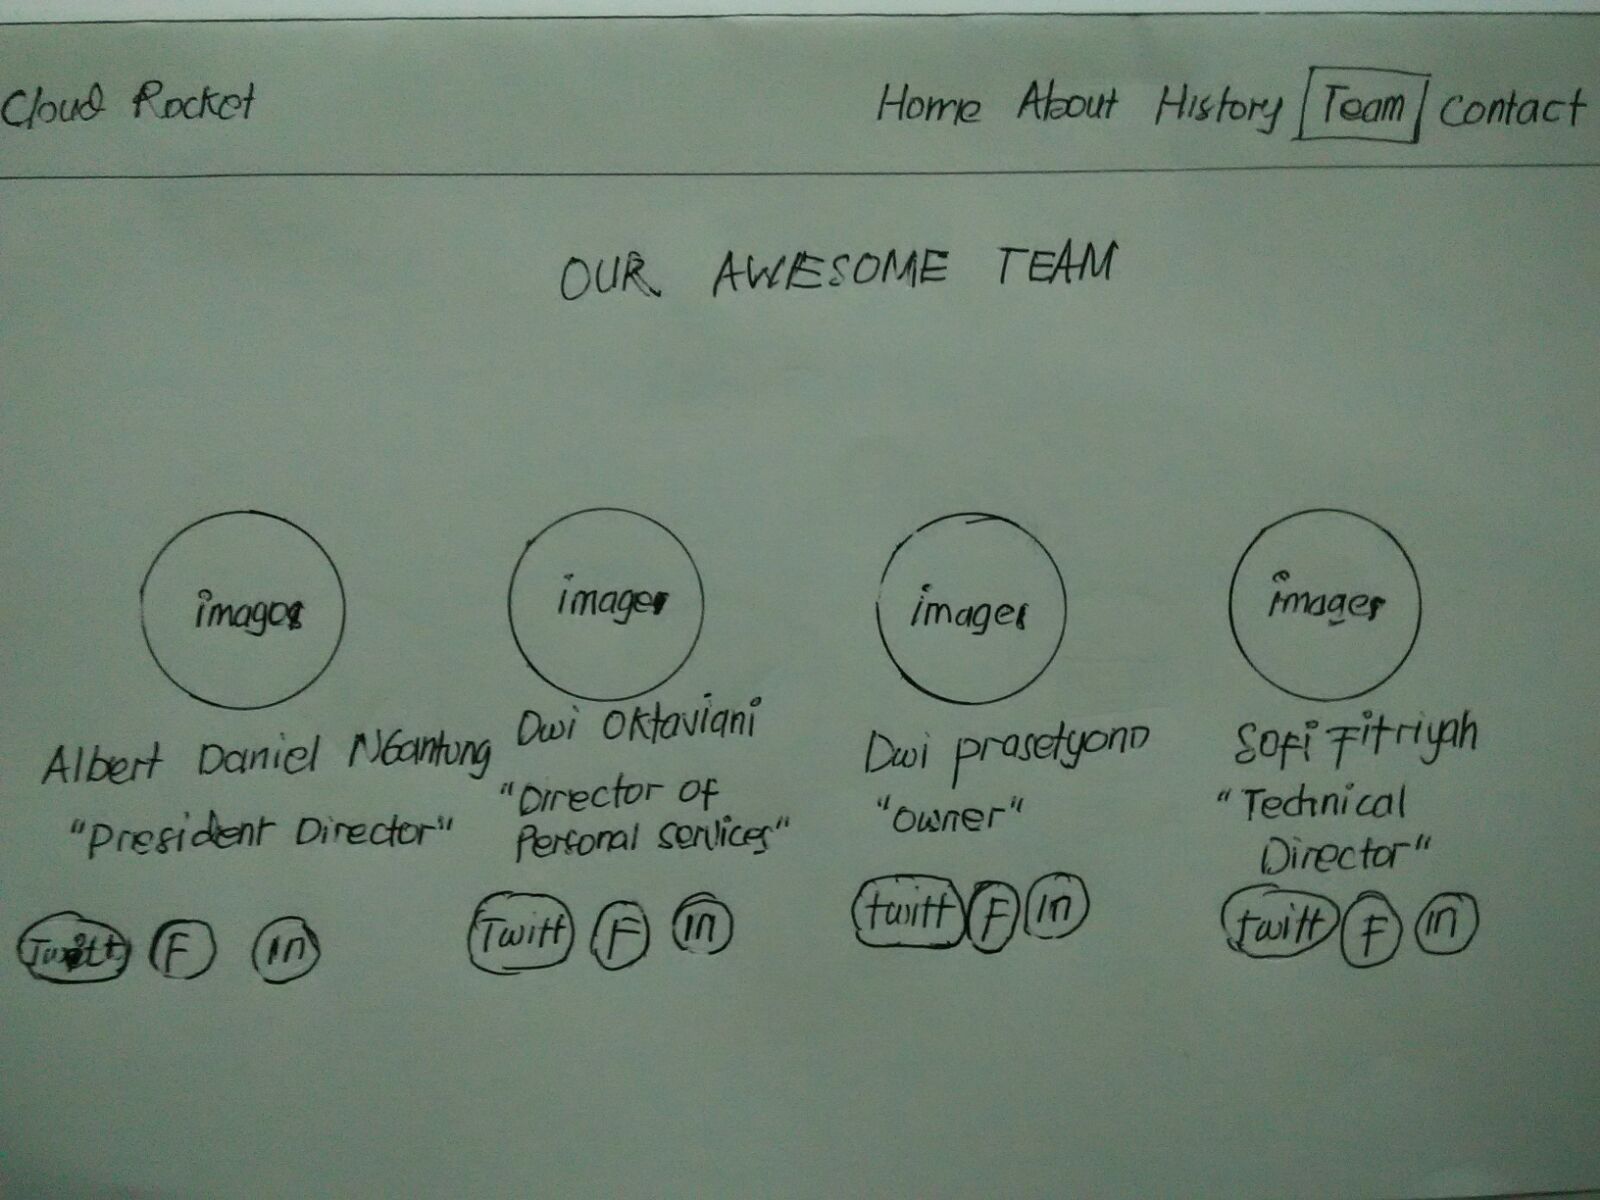 Cloud Rocket
Home About History Team Contact
OUR AWESOME TEAM
images
images
images
images
Albert Daniel NGantung
"President Director"
Twitt F in
Dwi Oktaviani
"Director of
Personal services"
Twitt F in
Dwi prasetyono
"owner"
twitt F in
Sofi Fitriyah
"Technical
Director"
twitt F in